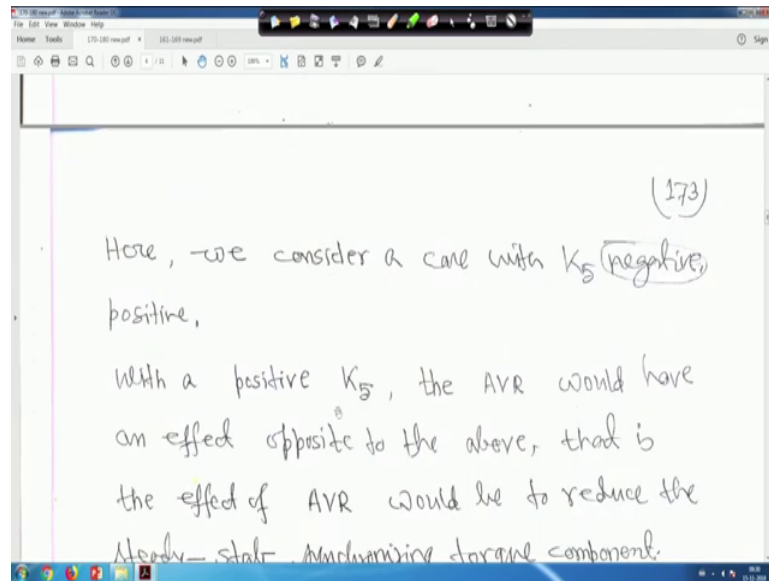 170-180 new.pdf - Adobe Acrobat Reader DC
File Edit View Window Help
Home Tools 170-180 new.pdf × 161-169 new.pdf Sign
4 / 11
(173)
Here, we consider a case with K5 negative,
positive,
With a positive K5, the AVR would have
an effect opposite to the above, that is
the effect of AVR would be to reduce the
steady-state synchronizing torque component.